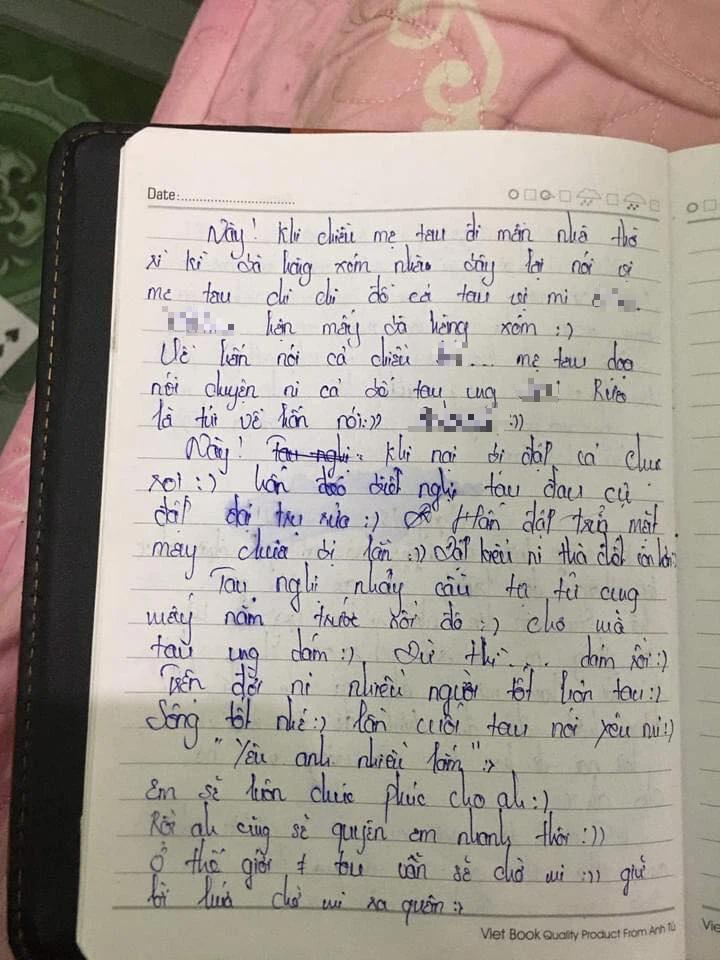 Date:
Này! Khi chiều mẹ tau đi mần nhà thờ
xì kì bà hàng xóm nhào đây lại nói với
mẹ tau chi chi đó cả tau với mi
hên mấy bà hàng xóm :)
Về hắn nói cả chiều ... mẹ tau dọa
nói chuyện ni cả tau ưng Rứa
là túi về hắn nói :)) :))
Này! Tau nghi Khi nại đi đập cả
:) hắn biết nghi tau đau cự
đập :) Hắn đập mặt
mày chưa bị lần :)) kiểu ni thà
Tau nghi nhảy cầu tự tử cũng
mấy năm trước rồi đó :) cho mà
tau ưng dám :). Dừ thì.... dám rồi :)
Trên đời ni nhiều người tốt hơn tau :)
Sống tốt nhé :) lần cuối tau nói yêu mi :)
" Yêu anh nhiều lắm " :>
Em sẽ luôn chúc phúc cho ah :)
Rồi ah cũng sẽ quên em nhanh thôi :))
Ở thế giới # tau vẫn sẽ chờ mi :)) giữ
lời hứa chờ mi ra quân :>
Viet Book Quality Product From Anh Tú